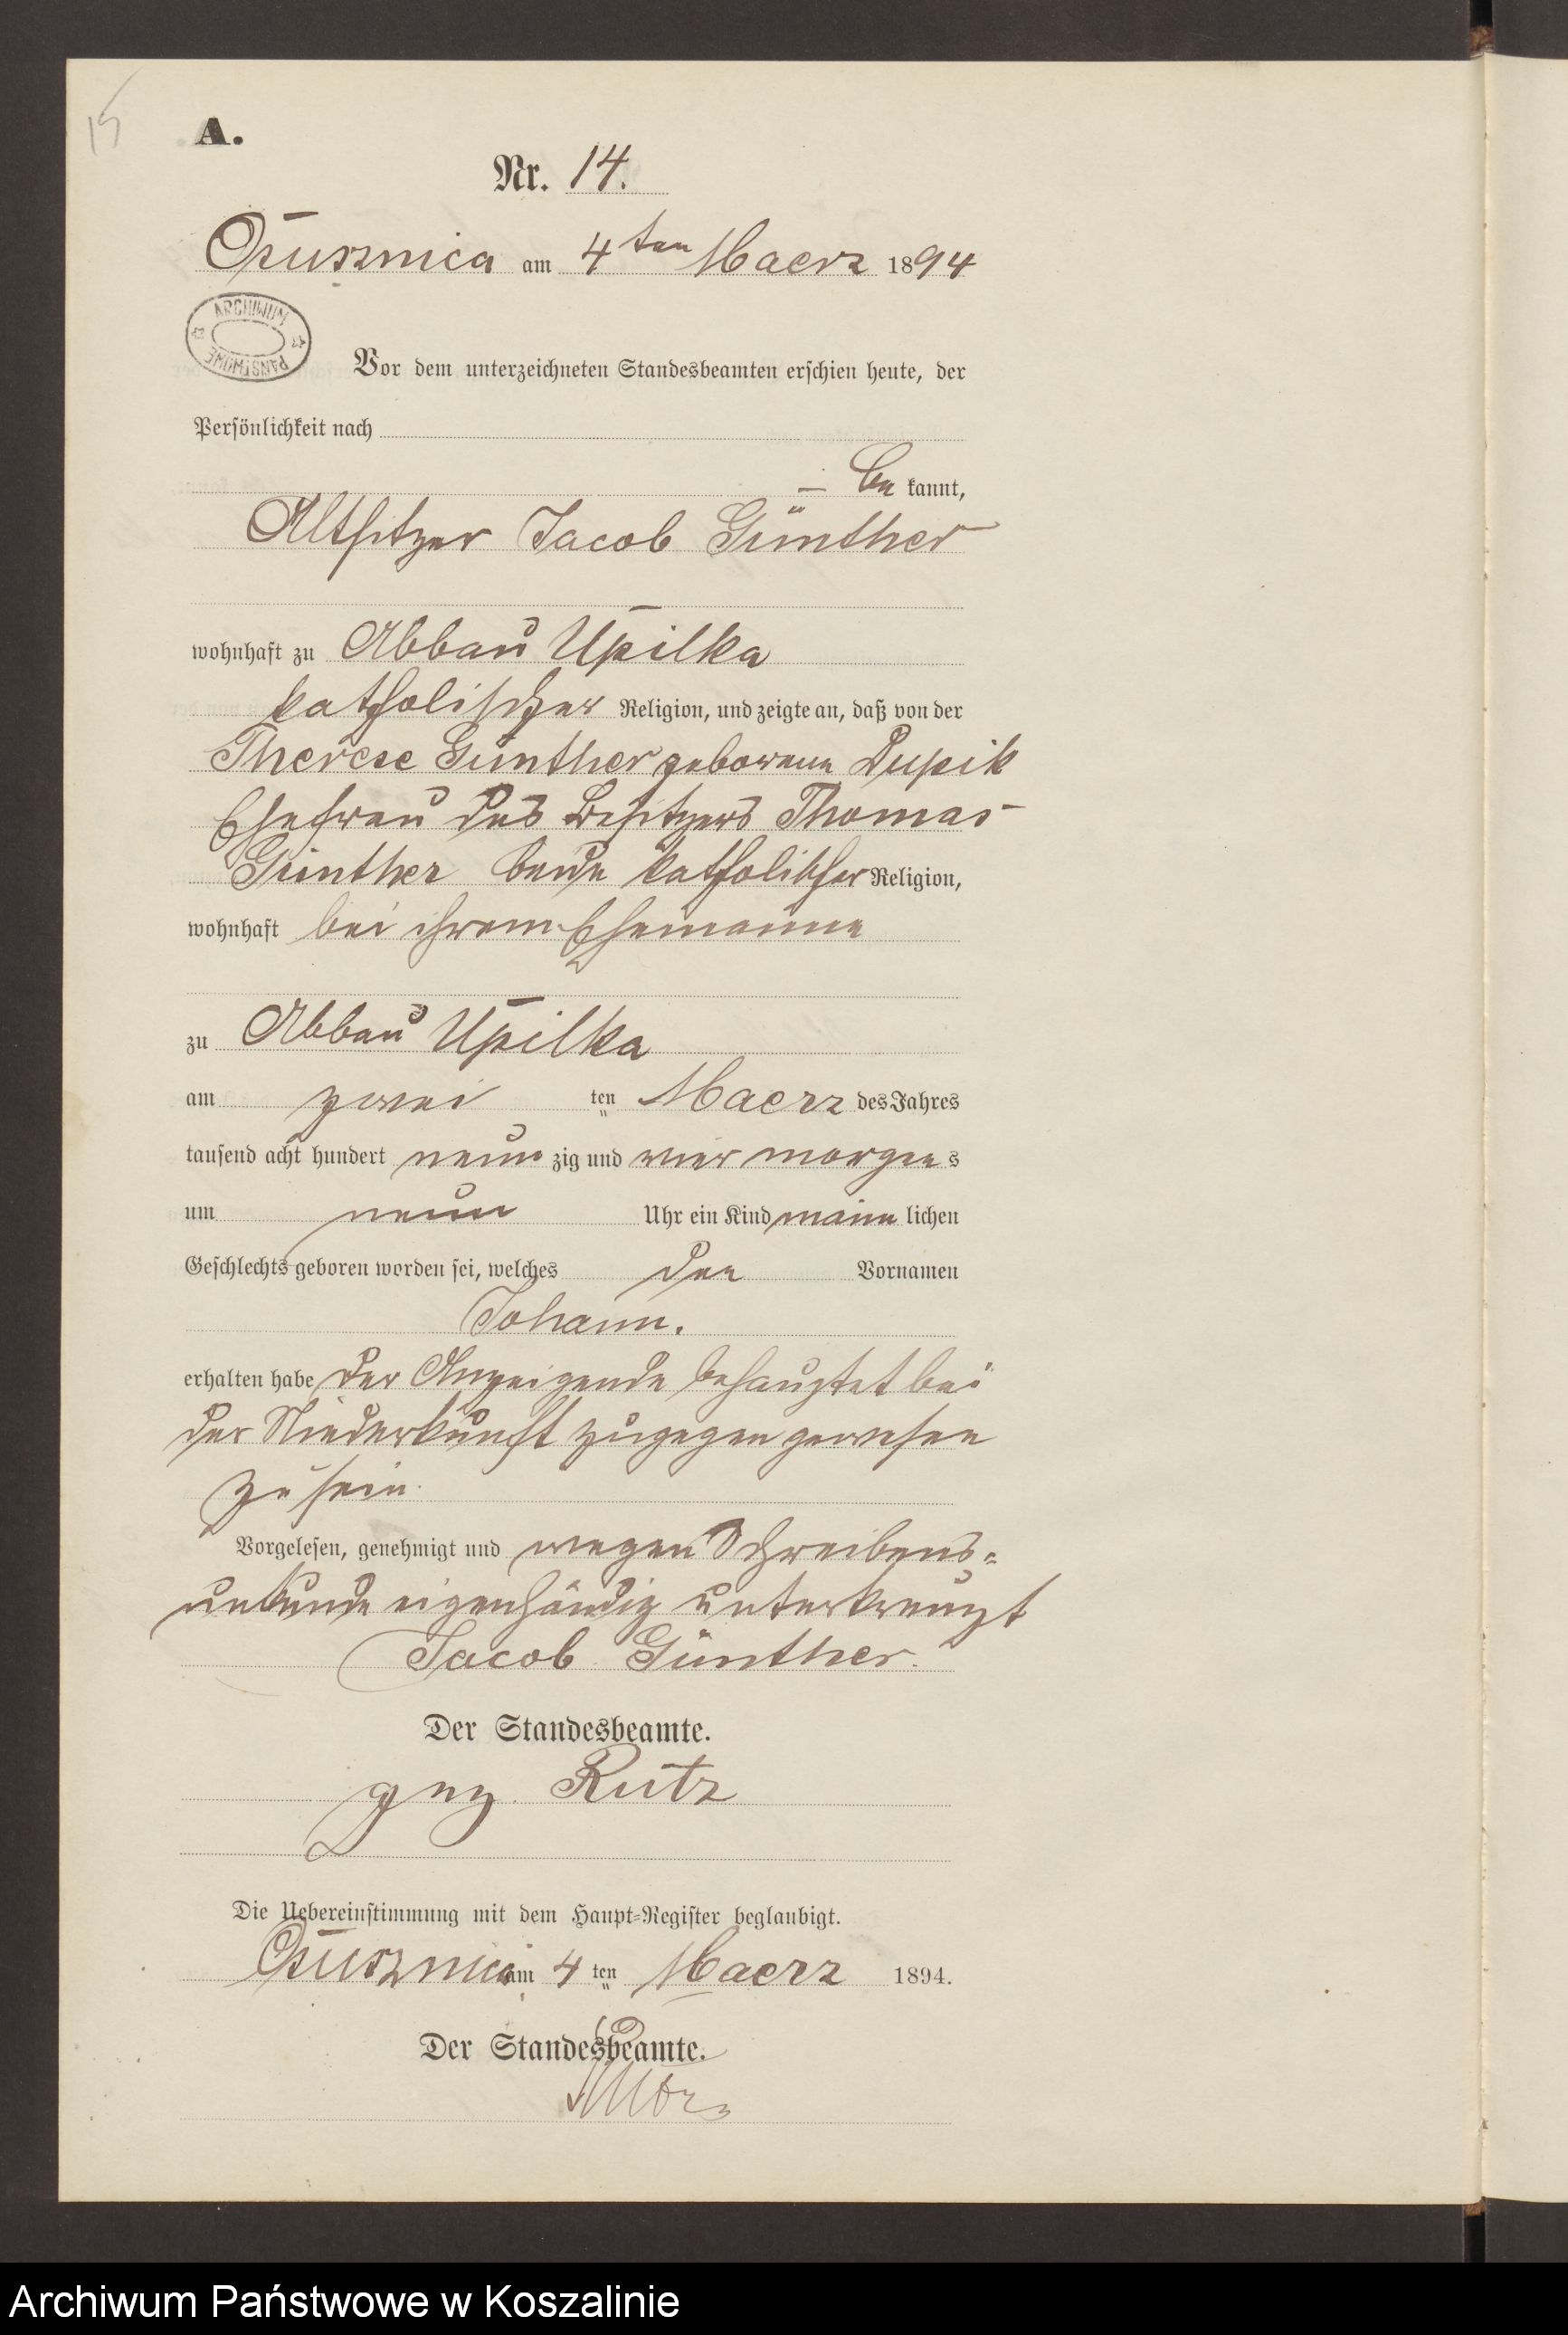 15
A.
Nr. 14.
Ossusznica am 4ten Maerz 1894
ARCHIWUM PAŃSTWOWE
Vor dem unterzeichneten Standesbeamten erschien heute, der
Persönlichkeit nach
– be kannt,
Altsitzer Jacob Günther
wohnhaft zu Abbau Upilka
katholischer Religion, und zeigte an, daß von der
Therese Günther geborene Dupik
Ehefrau des Besitzers Thomas
Günther beide katholischer Religion,
wohnhaft bei ihrem Ehemanne
zu Abbau Upilka
am zwei ten Maerz des Jahres
tausend acht hundert neun zig und vier morgens
um neun Uhr ein Kind männ lichen
Geschlechts geboren worden sei, welches den Vornamen
Johann.
erhalten habe der Anzeigende behauptet bei
der Niederkunft zugegen gewesen
zu sein.
Vorgelesen, genehmigt und wegen Schreibens-
unkunde eigenhändig unterkreuzt
Jacob Günther.
Der Standesbeamte.
gez. Rutz
Die Uebereinstimmung mit dem Haupt-Register beglaubigt.
am 4 ten Maerz 1894.
Der Standesbeamte.
Archiwum Państwowe w Koszalinie